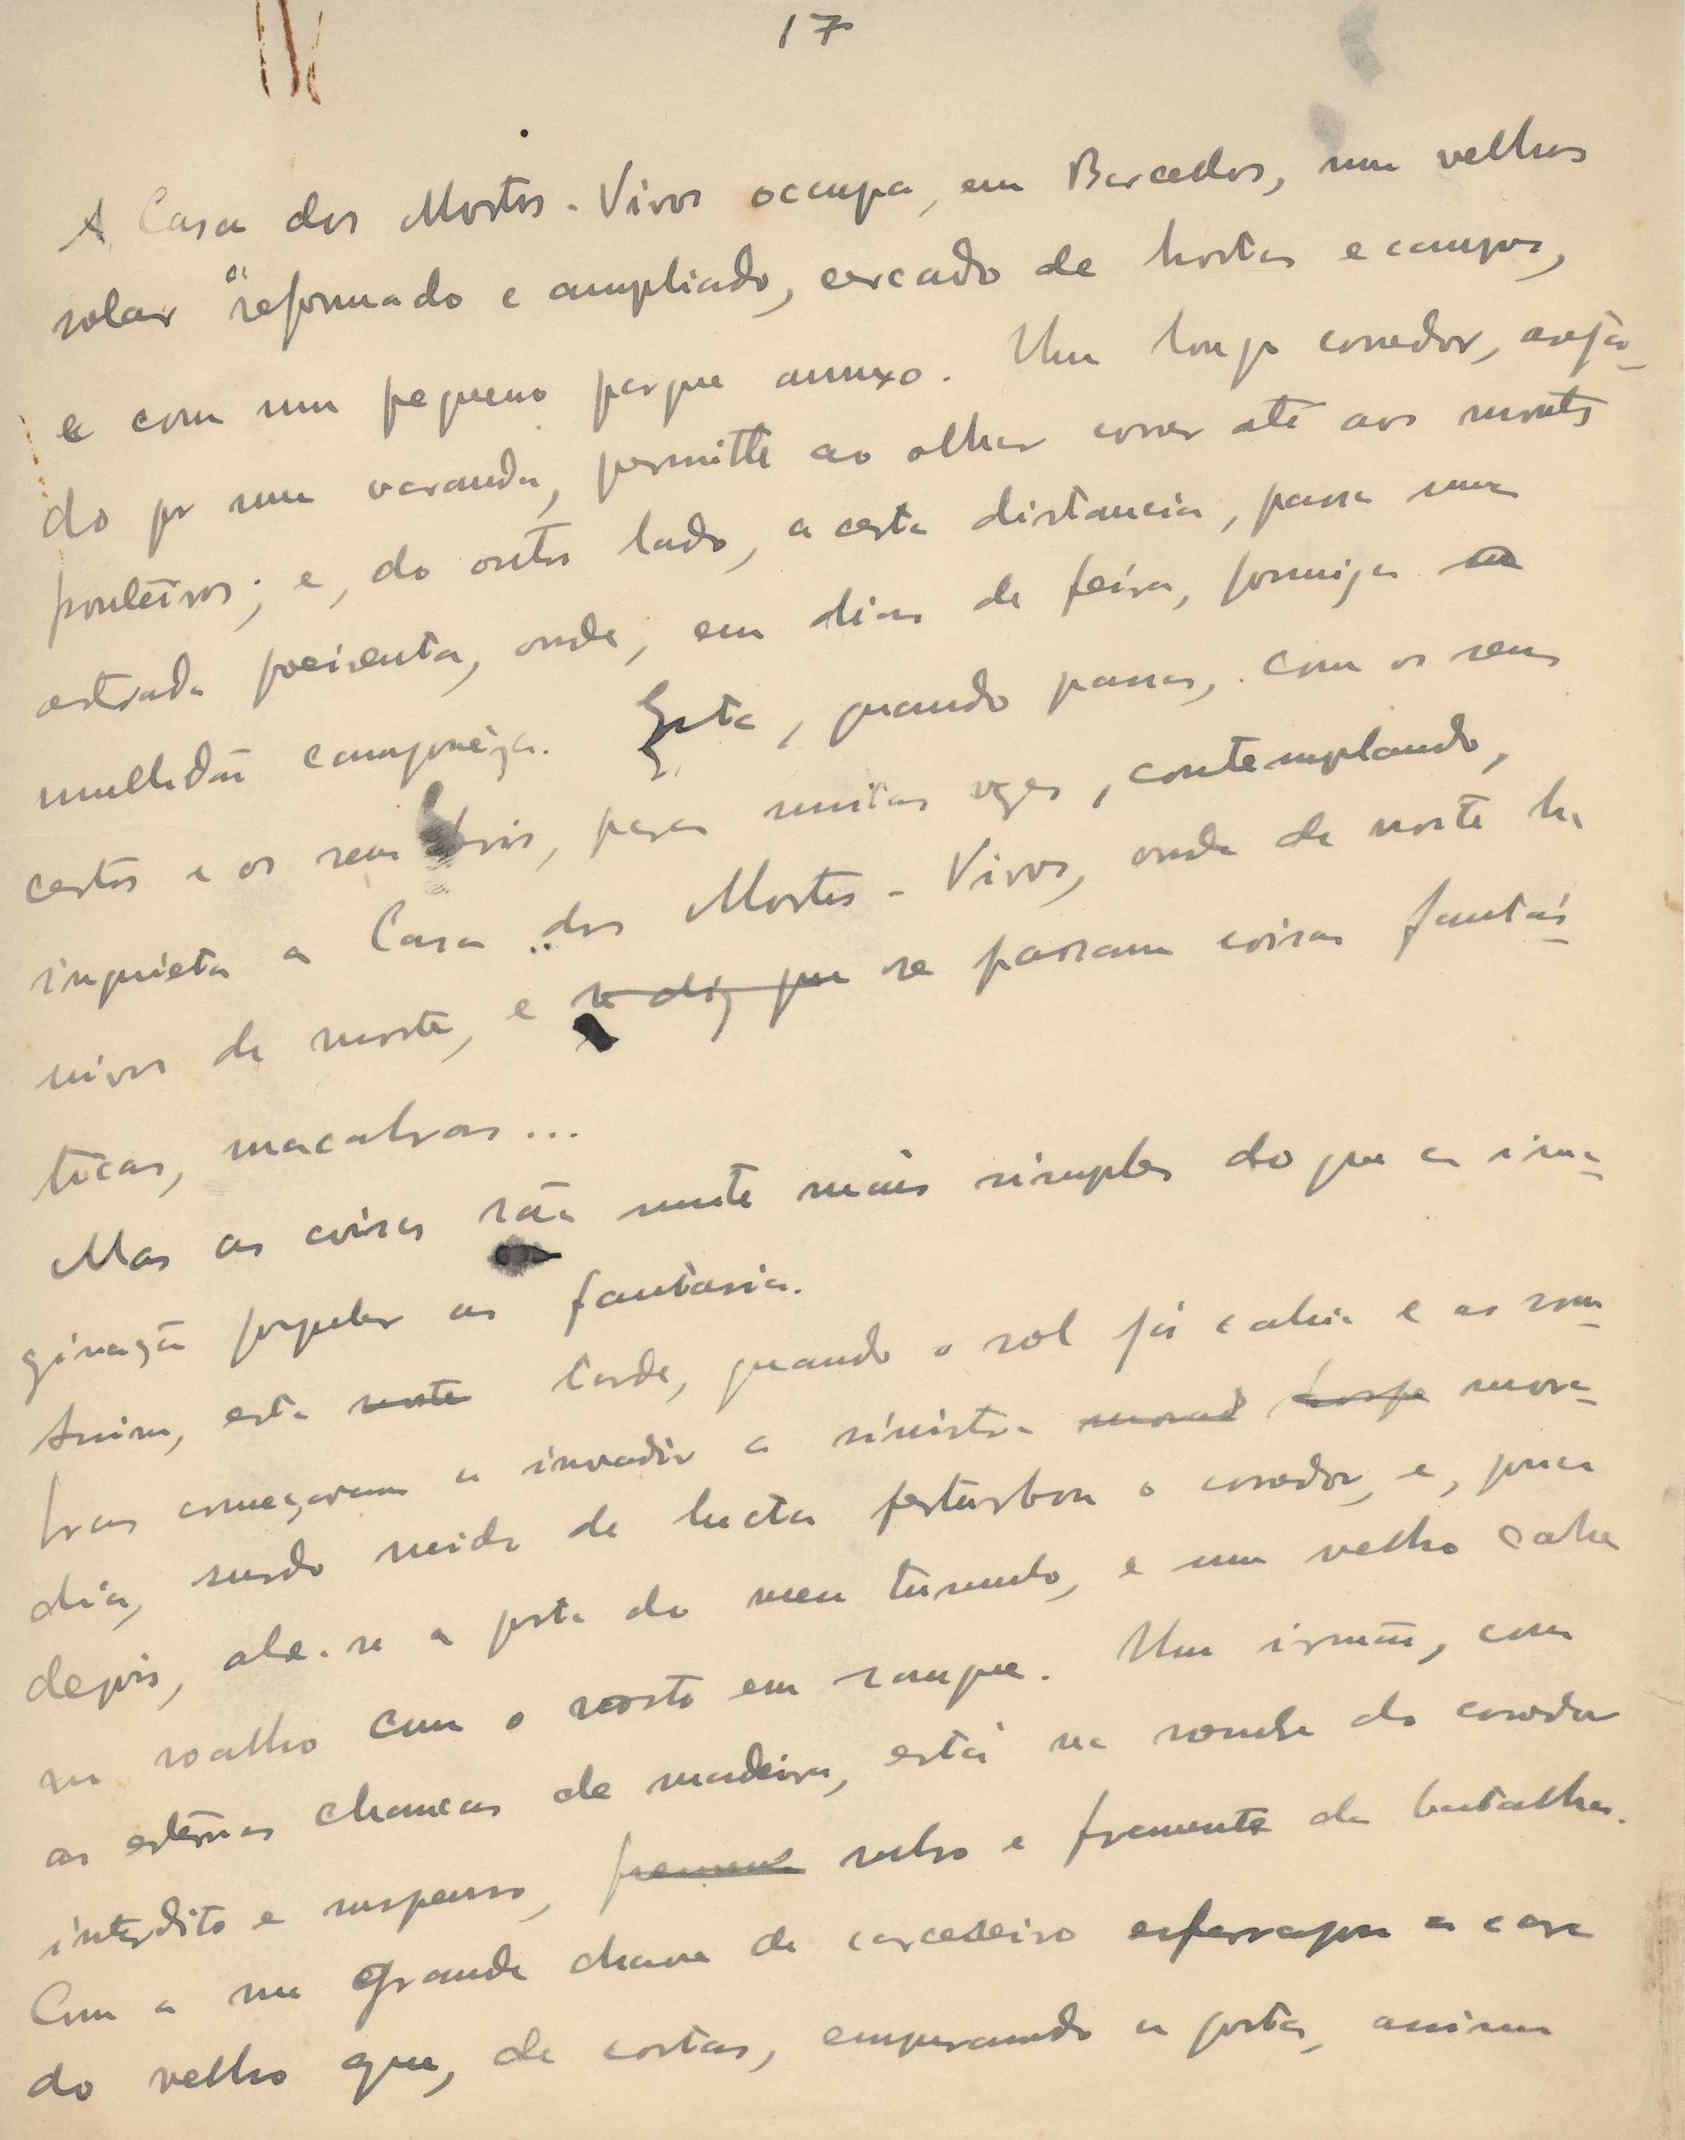 17
A Casa dos Mortos-Vivos occupa, em Barcellos, um velho
solar reformado e ampliado, cercado de hortas e campos,
e com um pequeno parque annexo. Um longo corredor, areja-
do por uma varanda, permitte ao olhar correr até aos montes
fronteiros; e, do outro lado, a certa distancia, passa uma
estrada poeirenta, onde, em dias de feira, formiga a
multidão camponêza. Esta, quando passa, com os seus
cestos e os seus bois, para muitas vezes, contemplando,
inquieta a Casa dos Mortos-Vivos, onde de noite ha
uivos de morte, e se diz que se passam coisas fantás-
ticas, macabras...
Mas as coisas são muito mais simples do que a ima-
ginação popular as fantasia.
Assim, esta noite tarde, quando o sol já cahia e as som-
bras começavam a invadir a sinistra morad mora-
dia, surdo ruido de lucta perturbou o corredor, e, pouco
depois, abre-se a porta do meu tumulo, e um velho cahe
no soalho com o rosto em sangue. Um irmão, com
as eternas chancas de madeira, está na sombra do corredor
interdito e suspenso, fremente rubro e fremente da batalha.
Com a sua grande chave de carcereiro esfarrapou a cara
do velho que, de costas, empurrando a porta, assim